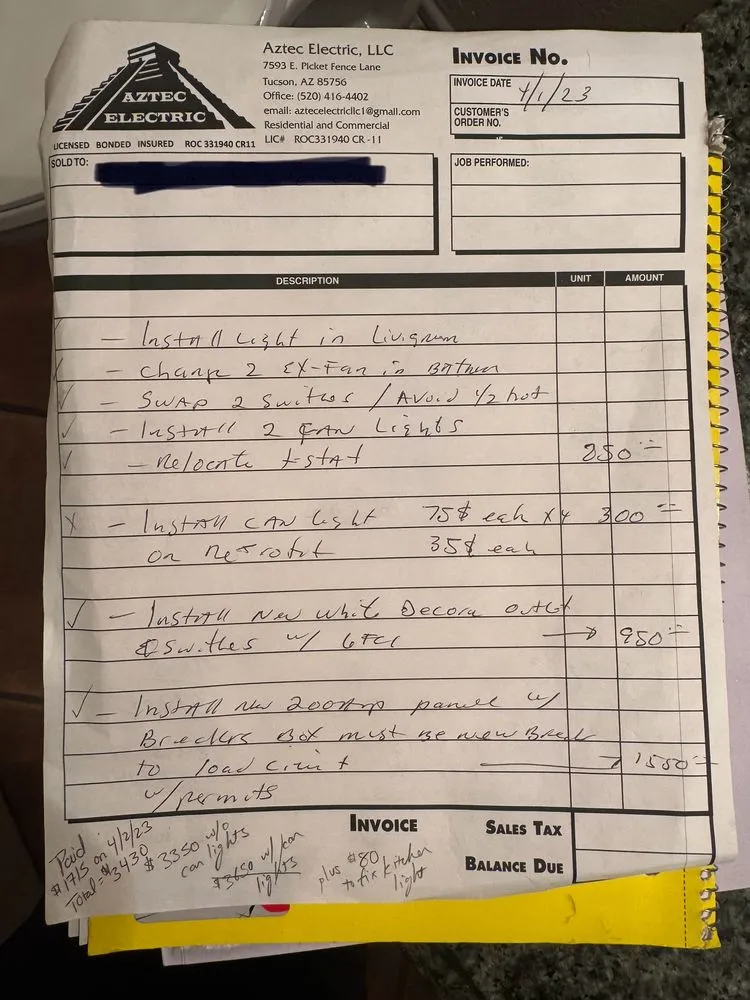 AZTEC
ELECTRIC
LICENSED BONDED INSURED ROC 331940 CR11
Aztec Electric, LLC
7593 E. Picket Fence Lane
Tucson, AZ 85756
Office: (520) 416-4402
email: aztecelectricllc1@gmail.com
Residential and Commercial
LIC# ROC331940 CR-11
INVOICE NO.
INVOICE DATE 4/1/23
CUSTOMER'S
ORDER NO.
SOLD TO:
JOB PERFORMED:
DESCRIPTION UNIT AMOUNT
- Install Light in
- Change 2 EX-Fan in
✓ - Swap 2 / Avoid 1/2 hot
✓ - Install 2 FAN Lights
✓ - Relocate t-stat 250
X - Install CAN light 75$ each x4 300
on 35$ each
✓ - Install New White Decora outlet
w/ GFCI → 950
✓ - Install New 200Amp w/
Box must be new
to load → 1550
w/permits
INVOICE
SALES TAX
BALANCE DUE
Paid
$1715 on 4/2/23
Total = $3430
$3350 w/o
can lights
$3650 w/can
lights
plus $80
to fix kitchen
light